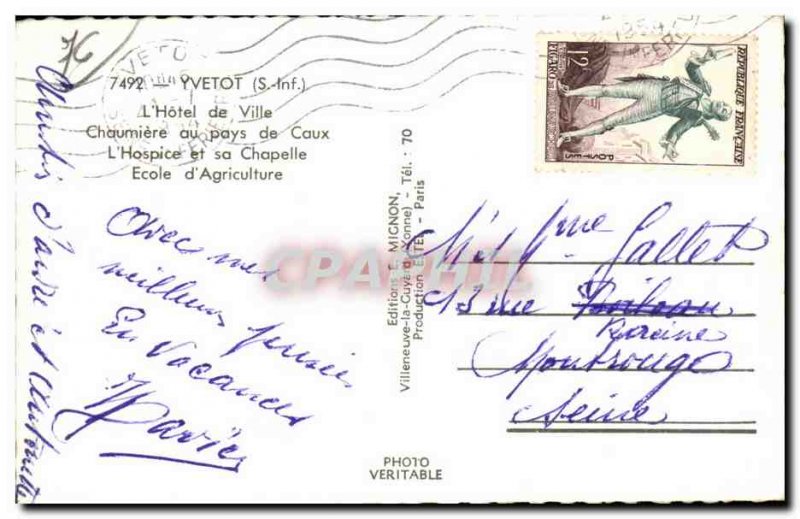 76
YVETOT
1954
7492 - YVETOT (S.-Inf.)
L'Hôtel de Ville
Chaumière au pays de Caux
L'Hospice et sa Chapelle
Ecole d'Agriculture
Avec mes
meilleurs pensées
En Vacances
d'André et
Editions E. MIGNON,
Villeneuve-la-Guyard (Yonne) - Tél. : 70
Production ETEL - Paris
12F
FIGARO
POSTES
REPUBLIQUE FRANÇAISE
Mr Mme Gallet
13 rue
Racine
Montrouge
Seine
PHOTO
VERITABLE
CPARPHIL